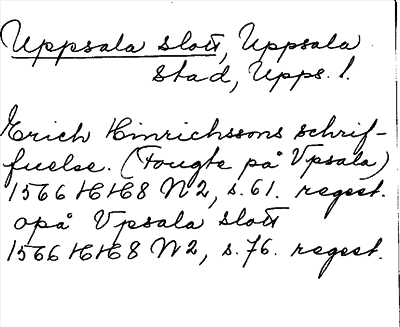 Uppsala slott, Uppsala
stad, Upps. l.
Erich Hinrichssons schrif-
fuelse. (Fougte på Vpsala)
1566 HH8 N2, s. 61. regest.
opå Vpsala slott
1566 HH8 N2, s. 76. regest.